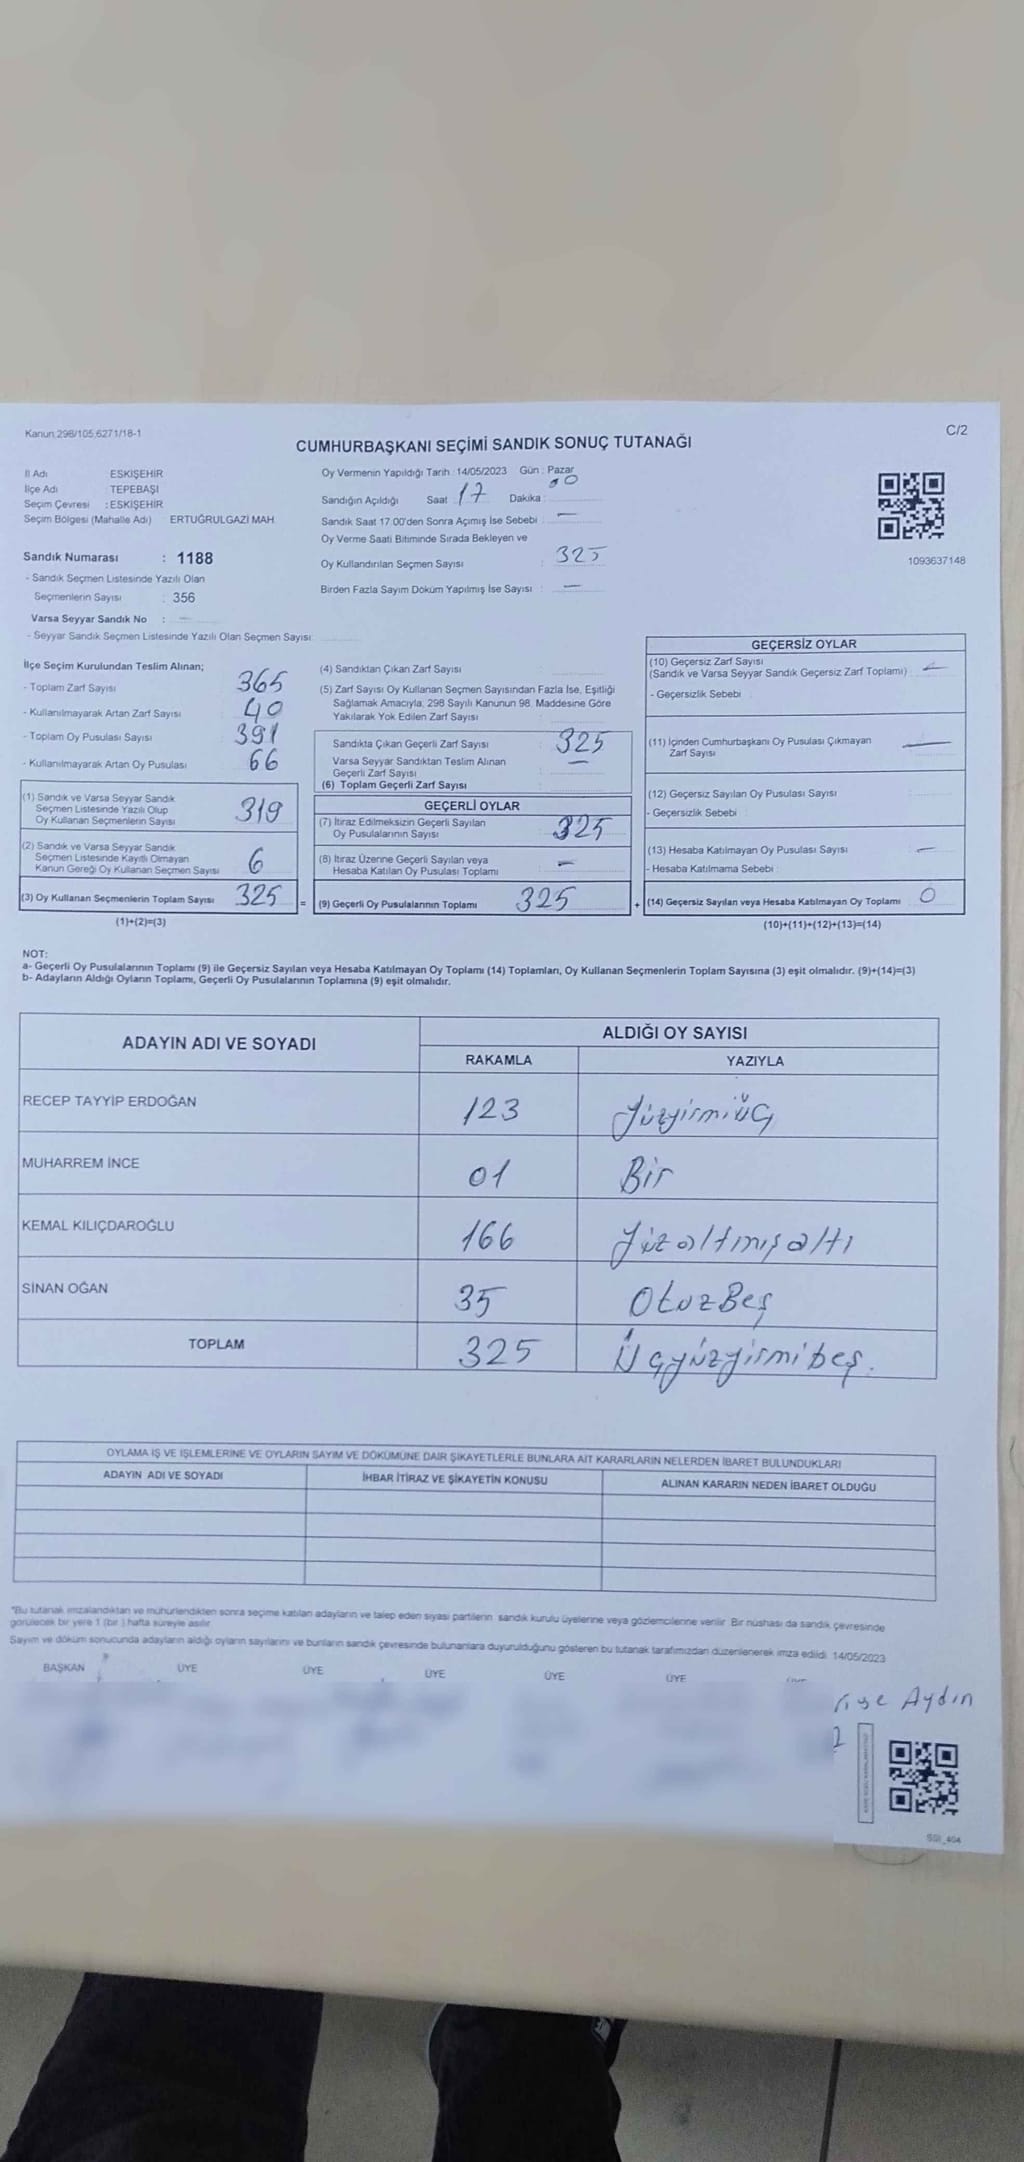 Kanun 298/105,6271/18-1
C/2
CUMHURBAŞKANI SEÇİMİ SANDIK SONUÇ TUTANAĞI
İl Adı : ESKİŞEHİR
İlçe Adı : TEPEBAŞI
Seçim Çevresi : ESKİŞEHİR
Seçim Bölgesi (Mahalle Adı) ERTUĞRULGAZİ MAH.
Sandık Numarası : 1188
- Sandık Seçmen Listesinde Yazılı Olan
Seçmenlerin Sayısı : 356
Varsa Seyyar Sandık No : -
- Seyyar Sandık Seçmen Listesinde Yazılı Olan Seçmen Sayısı
Oy Vermenin Yapıldığı Tarih : 14/05/2023 Gün : Pazar
Sandığın Açıldığı Saat 17 Dakika : 00
Sandık Saat 17.00'den Sonra Açımış İse Sebebi : -
Oy Verme Saati Bitiminde Sırada Bekleyen ve
Oy Kullandırılan Seçmen Sayısı : 325
Birden Fazla Sayım Döküm Yapılmış İse Sayısı : -
1093637148
İlçe Seçim Kurulundan Teslim Alınan;
- Toplam Zarf Sayısı 365
- Kullanılmayarak Artan Zarf Sayısı 40
- Toplam Oy Pusulası Sayısı 391
- Kullanılmayarak Artan Oy Pusulası 66
(1) Sandık ve Varsa Seyyar Sandık
Seçmen Listesinde Yazılı Olup
Oy Kullanan Seçmenlerin Sayısı 319
(2) Sandık ve Varsa Seyyar Sandık
Seçmen Listesinde Kayıtlı Olmayan
Kanun Gereği Oy Kullanan Seçmen Sayısı 6
(3) Oy Kullanan Seçmenlerin Toplam Sayısı 325
(1)+(2)=(3)
(4) Sandıktan Çıkan Zarf Sayısı
(5) Zarf Sayısı Oy Kullanan Seçmen Sayısından Fazla İse, Eşitliği
Sağlamak Amacıyla, 298 Sayılı Kanunun 98. Maddesine Göre
Yakılarak Yok Edilen Zarf Sayısı
Sandıkta Çıkan Geçerli Zarf Sayısı : 325
Varsa Seyyar Sandıktan Teslim Alınan
Geçerli Zarf Sayısı : -
(6) Toplam Geçerli Zarf Sayısı
GEÇERLİ OYLAR
(7) İtiraz Edilmeksizin Geçerli Sayılan
Oy Pusulalarının Sayısı : 325
(8) İtiraz Üzerine Geçerli Sayılan veya
Hesaba Katılan Oy Pusulası Toplamı -
= (9) Geçerli Oy Pusulalarının Toplamı 325
GEÇERSİZ OYLAR
(10) Geçersiz Zarf Sayısı
(Sandık ve Varsa Seyyar Sandık Geçersiz Zarf Toplamı) -
- Geçersizlik Sebebi
(11) İçinden Cumhurbaşkanı Oy Pusulası Çıkmayan
Zarf Sayısı -
(12) Geçersiz Sayılan Oy Pusulası Sayısı
- Geçersizlik Sebebi
(13) Hesaba Katılmayan Oy Pusulası Sayısı -
- Hesaba Katılmama Sebebi
+ (14) Geçersiz Sayılan veya Hesaba Katılmayan Oy Toplamı 0
(10)+(11)+(12)+(13)=(14)
NOT:
a- Geçerli Oy Pusulalarının Toplamı (9) ile Geçersiz Sayılan veya Hesaba Katılmayan Oy Toplamı (14) Toplamları, Oy Kullanan Seçmenlerin Toplam Sayısına (3) eşit olmalıdır. (9)+(14)=(3)
b- Adayların Aldığı Oyların Toplamı, Geçerli Oy Pusulalarının Toplamına (9) eşit olmalıdır.
ADAYIN ADI VE SOYADI
ALDIĞI OY SAYISI
RAKAMLA YAZIYLA
RECEP TAYYİP ERDOĞAN 123 Yüzyirmiüç
MUHARREM İNCE 01 Bir
KEMAL KILIÇDAROĞLU 166 Yüzaltmışaltı
SİNAN OĞAN 35 OtuzBeş
TOPLAM 325 Üçyüzyirmibeş.
OYLAMA İŞ VE İŞLEMLERİNE VE OYLARIN SAYIM VE DÖKÜMÜNE DAİR ŞİKAYETLERLE BUNLARA AİT KARARLARIN NELERDEN İBARET BULUNDUKLARI
ADAYIN ADI VE SOYADI İHBAR İTİRAZ VE ŞİKAYETİN KONUSU ALINAN KARARIN NEDEN İBARET OLDUĞU
*Bu tutanak imzalandıktan ve mühürlendikten sonra seçime katılan adayların ve talep eden siyasi partilerin sandık kurulu üyelerine veya gözlemcilerine verilir. Bir nüshası da sandık çevresinde
görülecek bir yere 1 (bir) hafta süreyle asılır.
Sayım ve döküm sonucunda adayların aldığı oyların sayılarını ve bunların sandık çevresinde bulunanlara duyurulduğunu gösteren bu tutanak tarafımızdan düzenlenerek imza edildi. 14/05/2023
BAŞKAN ÜYE ÜYE ÜYE ÜYE ÜYE
Aydın